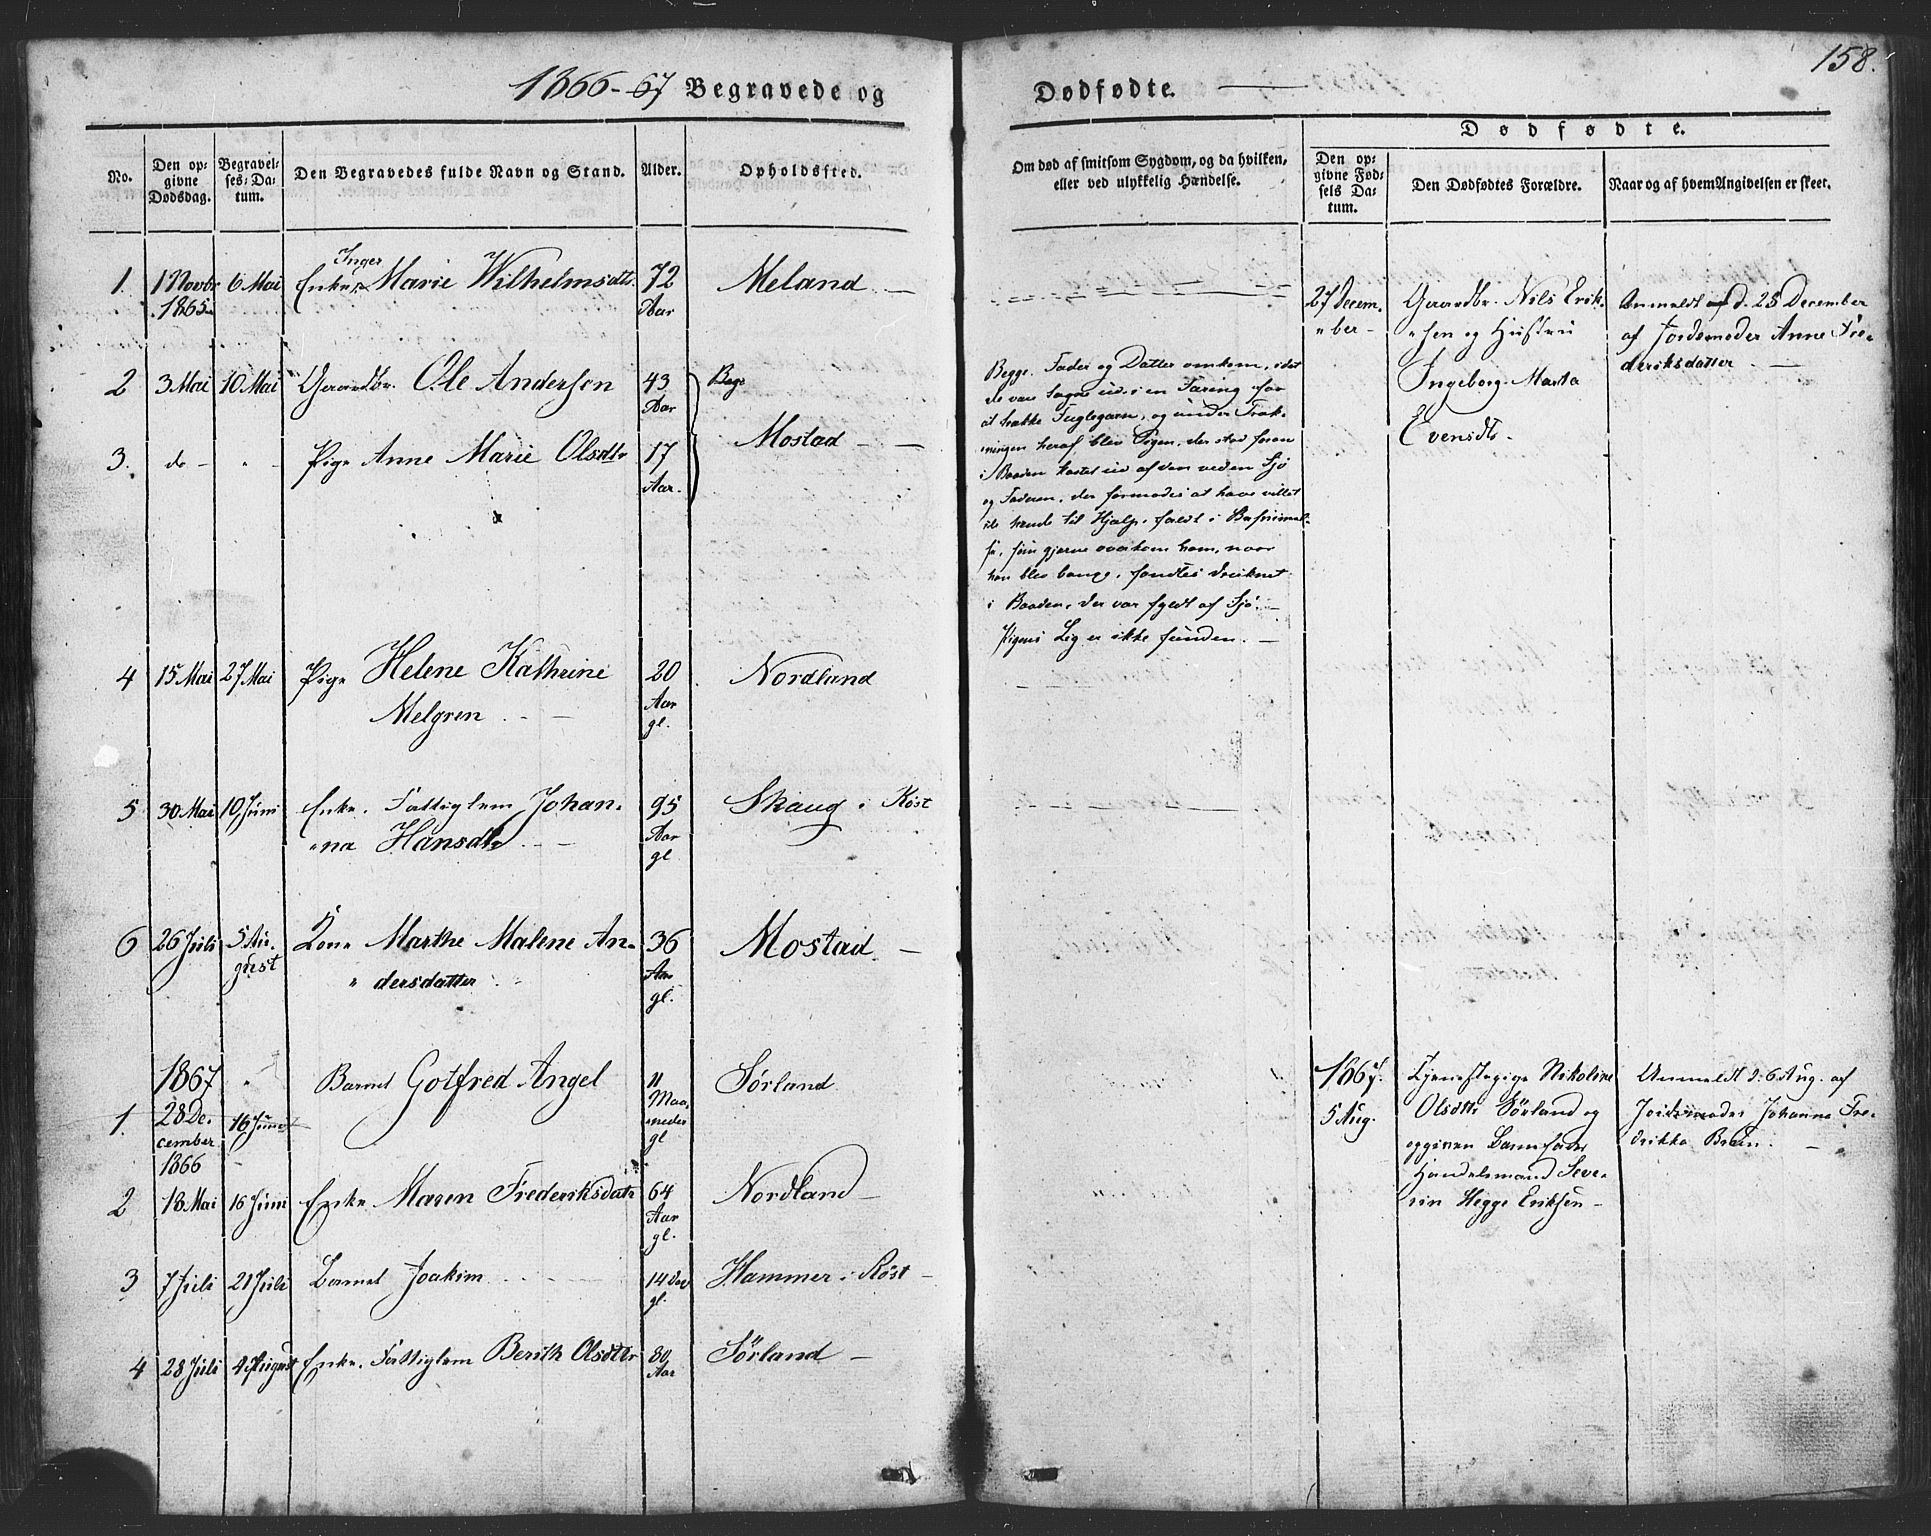 158.
1866-67 Begravede og Dødfødte.
No.
Den opgivne Dødsdag.
Begravelses-Datum.
Den Begravedes fulde Navn og Stand.
Alder.
Opholdssted.
Om død af smitsom Sygdom, og da hvilken,
eller ved ulykkelig Hændelse.
Dødfødte.
Den opgivne Fødsels Datum.
Den Dødfødtes Forældre.
Naar og af hvem Angivelsen er skeet.
1. 1 Novbr 6 Mai Enke Inger Marie Wilhelmsdtr. 72 Meland
1865 Aar
27 Decem-
ber
Gaardbr. Nils Erik-
sen og Hustru
Ingeborg Marta
Evensdtr.
Anmeldt d. 28 December
af Jordemoder Anne Fre-
deriksdatter
2 3 Mai 10 Mai Gaardbr. Ole Andersen 43 Begge
Aar Mostad
3. do " Pige Anne Marie Olsdtr 17
Aar.
Begge, Fader og Datter omkom, idet
de vare tagne ud i en Færing for
at trække Fuglegarn, og under Træk-
ningen heraf blev Pigen, der stod foran
i Baaden kastet ud af den ved en Sjø
og Faderen, der formodes at have villet
ile hende til Hjælp, faldt i Besvimel-
se, som gjerne overkom ham, naar
han blev bange, fandtes druknet
i Baaden, der var fyldt af Sjø.
Pigens Lig er ikke funden.
4 15 Mai 27 Mai Pige Helene Kathrine 20 Nordland
Melgren Aar
gl.
5 30 Mai 10 Juni Enke. Fattiglem Johan- 95 Skaug i Røst
na Hansdtr Aar
gl
6 26 Juli 5 Au- Kone Marthe Malene An- 36 Mostad
gust dersdatter Aar
gl.
1867
1. 28 De- 16 Juni Barnet Gotfred Angel 11 Sørland
cember Maa-
1866 neder
gl
1867.
5 Aug.
Tjenestepige Nikoline
Olsdtr Sørland og
opgiven Barnefader
Handelsmand Seve-
rin Hegge Eriksen
Anmeldt d. 6 Aug. af
Jordemoder Johanna Fre-
drikka Bruun.
2 18 Mai 16 Juni Enke Maren Frederiksdatr 64 Nordland
Aar
gl.
3 7 Juli 21 Juli Barnet Joakim 14 Dag Hammer i Røst
gl.
4 28 Juli 4 August Enke. Fattiglem Berith Olsdtr 80 Sørland
Aar